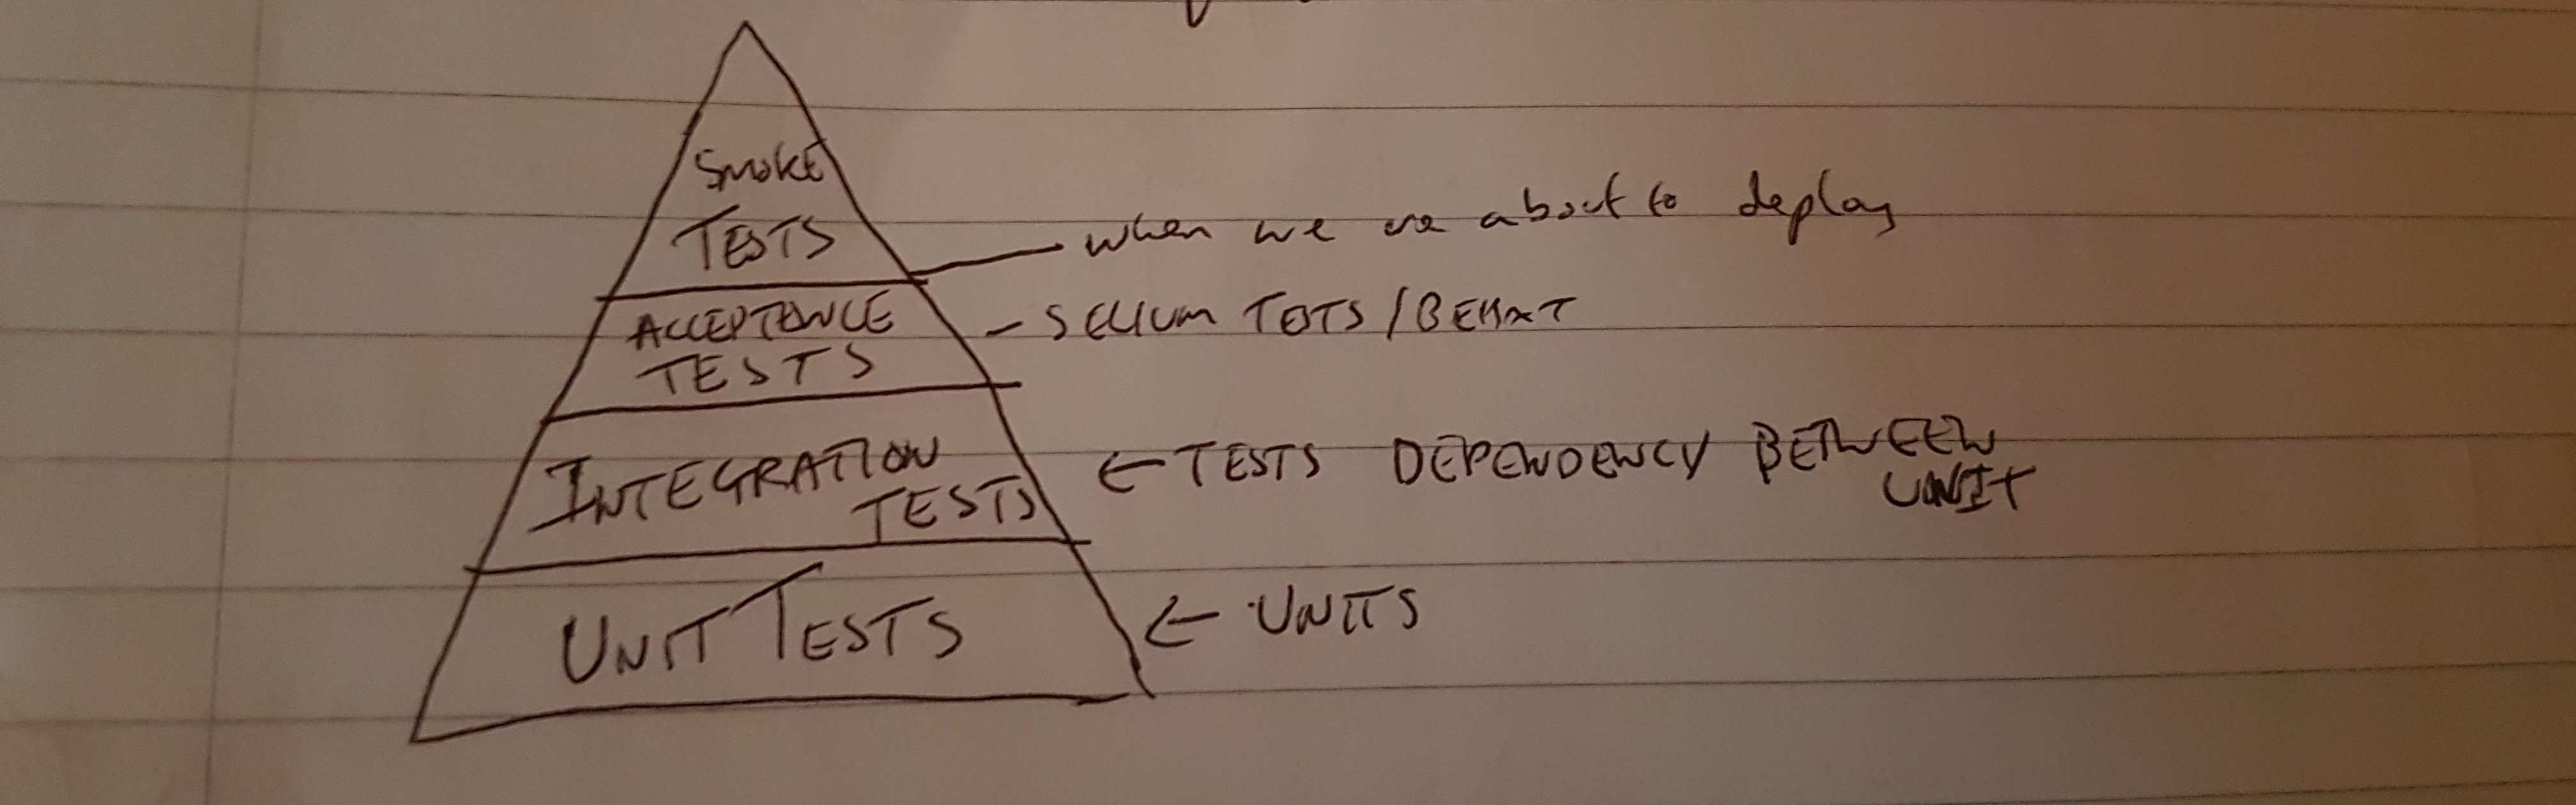 Smoke
TESTS
when we are about to deploy
ACCEPTENCE
TESTS
- SELIUM TESTS / BEHAT
INTEGRATION
TESTS
← TESTS DEPENDENCY BETWEEN
UNIT
UNIT TESTS
← UNITS